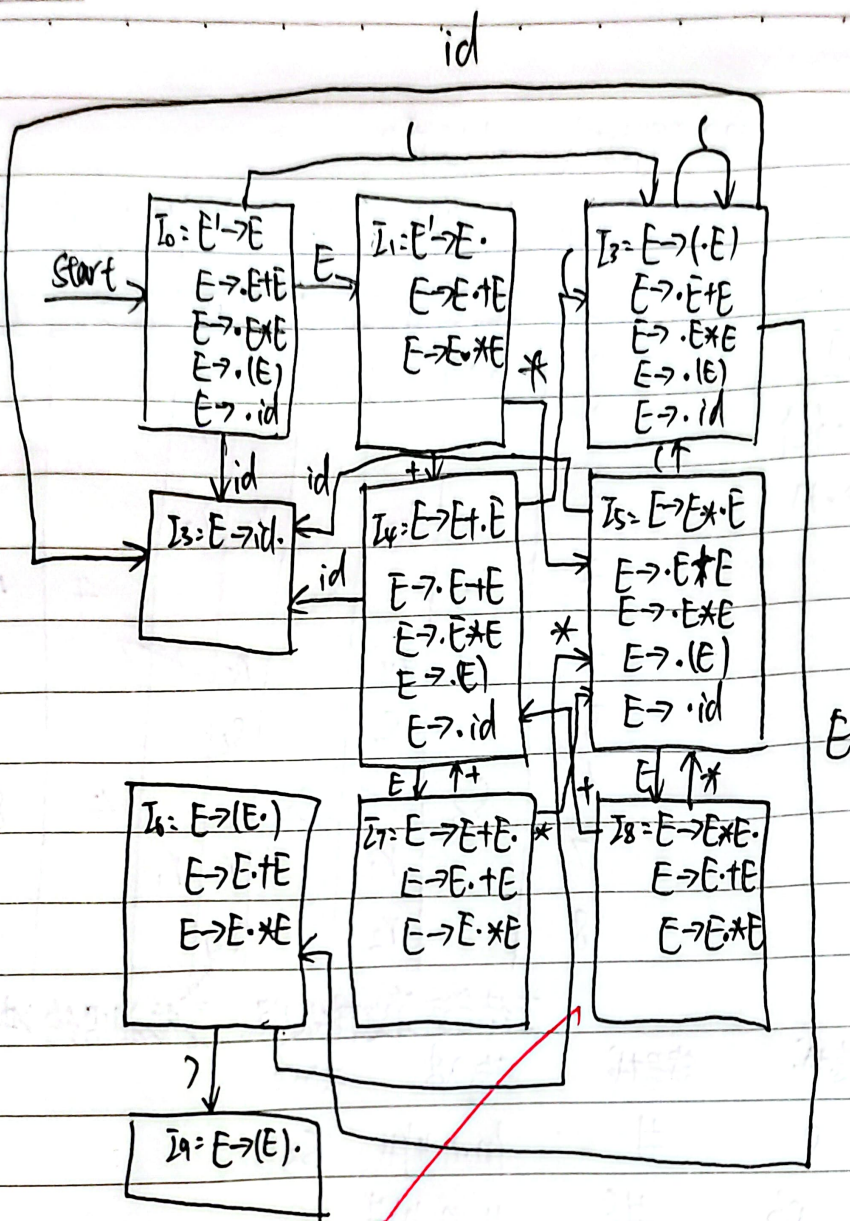 id
(
(
I0= E'→E
E→.E+E
E→.E*E
E→.(E)
E→.id
start
E
I1=E'→E.
E→E.+E
E→E.*E
*
(
I3= E→(.E)
E→.E+E
E→.E*E
E→.(E)
E→.id
id
id
+
(
I3= E→id.
id
I4=E→E+.E
E→.E+E
E→.E*E
E→.(E)
E→.id
I5= E→E*.E
E→.E+E
E→.E*E
E→.(E)
E→.id
*
E
E
+
E
*
+
I6= E→(E.)
E→E.+E
E→E.*E
I7= E→E+E.
E→E.+E
E→E.*E
*
I8=E→E*E.
E→E.+E
E→E.*E
)
I9=E→(E).